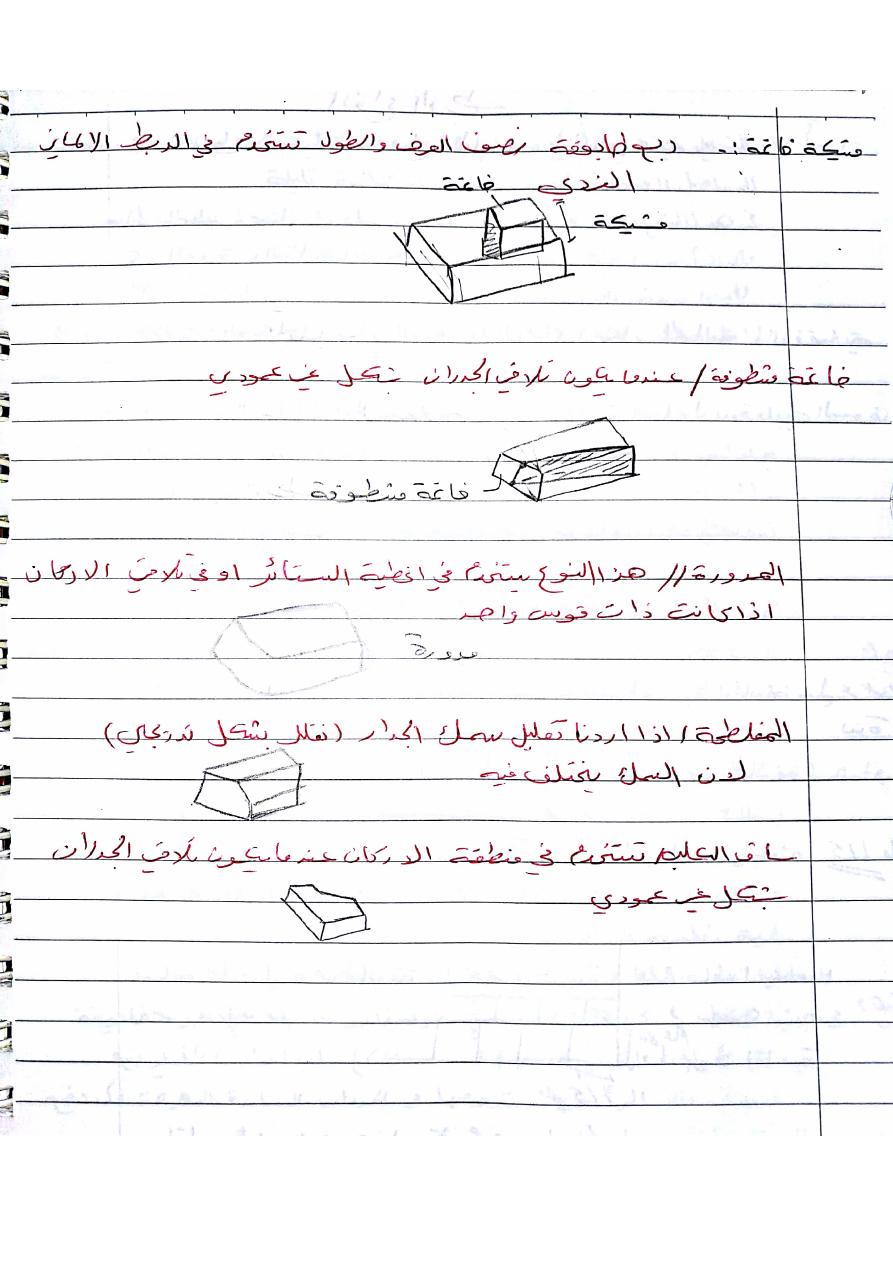 فتيكة فاغة :- ربع طابوقة نصف العرض والطول تستخدم في الربط الالماني
الفردي
فاغة
فتيكة
فاغة مشطوفة / عندما يكون تلاقي الجدران بشكل غير عمودي
فاغة مشطوفة
المدورة // هذا النوع يستخدم في اغطية الستائر او في تلاقي الاركان
اذا كانت ذات قوس واحد
مدورة
المفلطحة / اذا اردنا تقليل سمك الجدار (نقلل بشكل تدريجي)
لان السمك يختلف فيه
ساق الكلب / تستخدم في منطقة الاركان عندما يكون تلاقي الجدران
بشكل غير عمودي